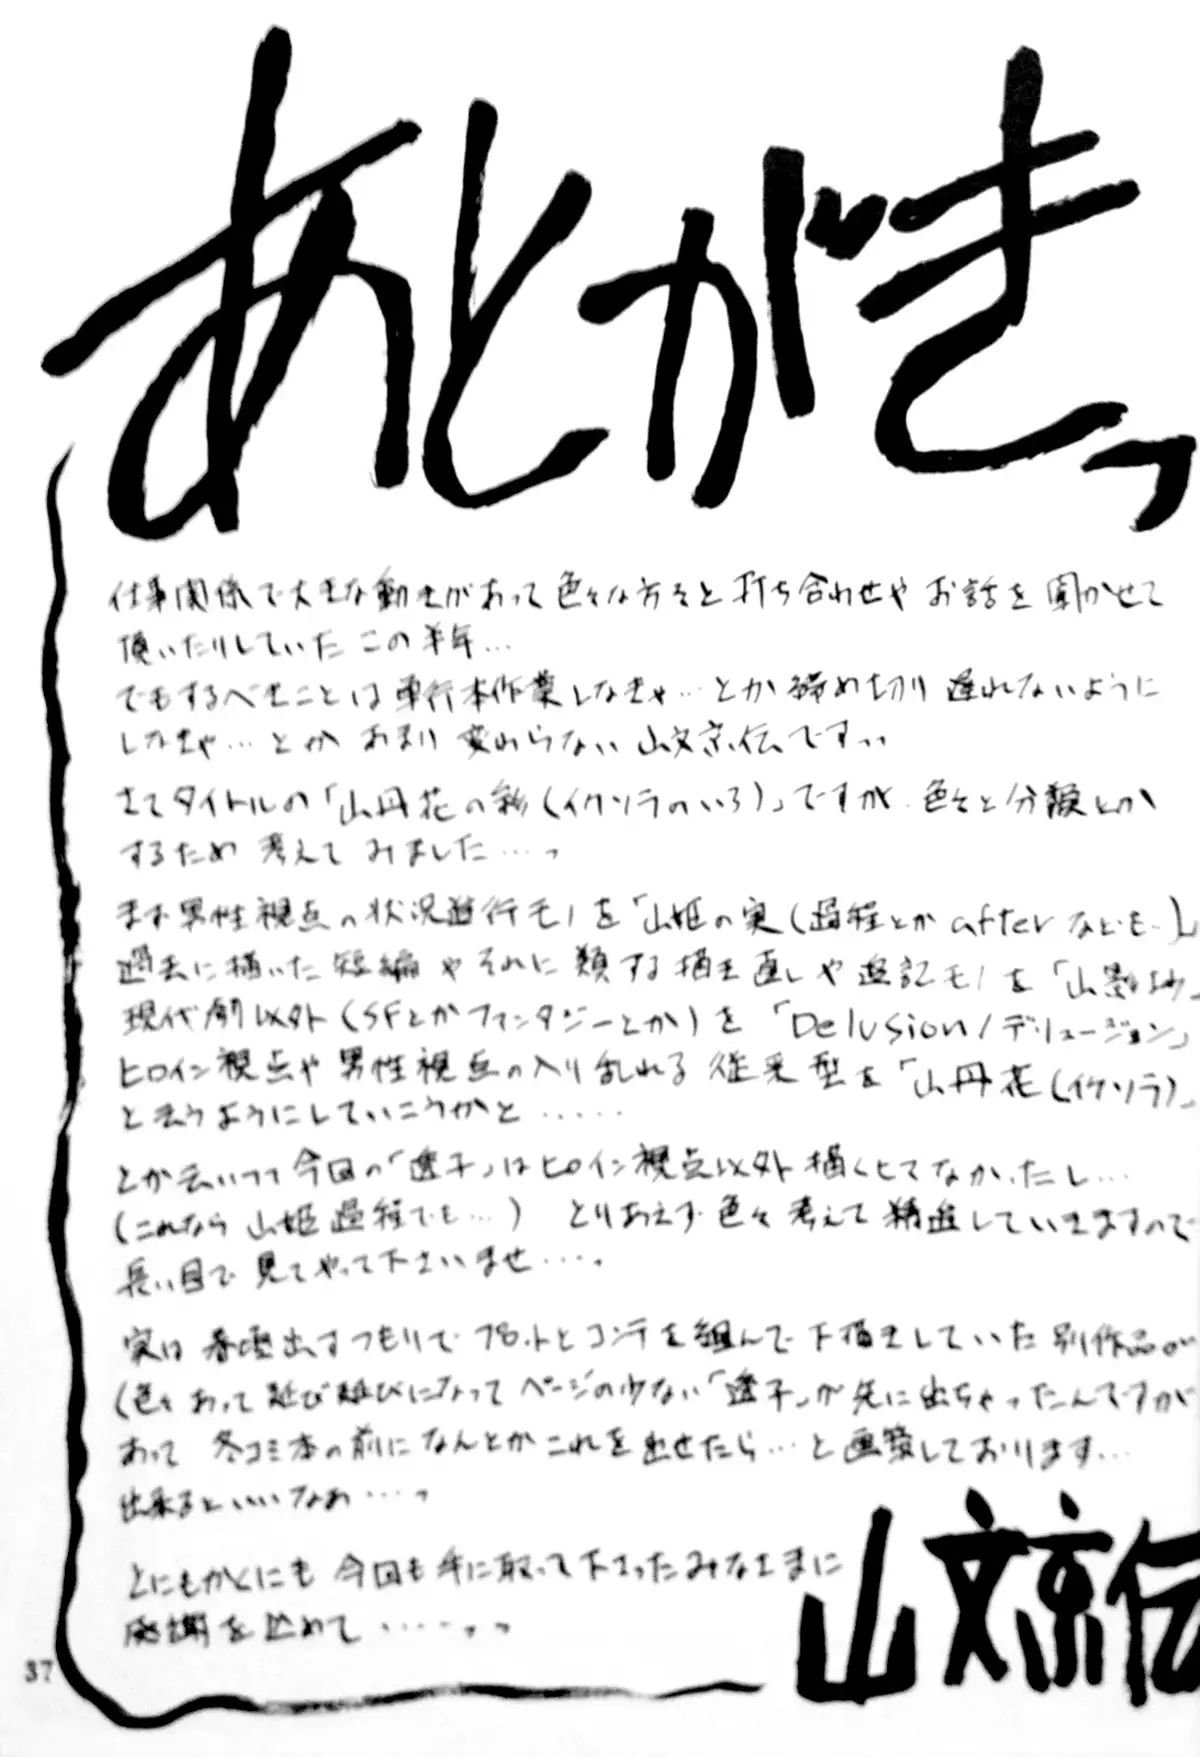 あとがきっ
仕事関係で大きな動きがあって色々な方々と打ち合わせやお話を聞かせて
頂いたりしていたこの半年…
でもするべきことは単行本作業しなきゃ…とか締め切り遅れないように
しなきゃ…とかあまり変わらない山文京伝ですっ
さてタイトルの「山丹花の彩(イケソラのいろ)」ですが、色々と分類とか
するため考えてみました……っ
まず男性視点の状況進行モノを「山姫の実(過程とかafterなども…)」
過去に描いた短編やそれに類する描き直しや追記モノを「山影抄」
現代劇以外(SFとかファンタジーとか)を「Delusion/デリュージョン」
ヒロイン視点や男性視点の入り乱れる従来型を「山丹花(イケソラ)」
と云うようにしていこうかと……
とか云いつつ今回の「透子」はヒロイン視点以外描くヒトてなかったし…
(これなら山姫過程でも…) とりあえず色々考えて精進していきますので
長い目で見てやって下さいませ……。
実は春頃出すつもりでプロットとコンテを組んで下描きしていた別作品が
(色々あって延び延びになってページの少ない「透子」が先に出ちゃったんですが
あって 冬コミ本の前になんとかこれを出せたら…と画策しております…
出来るといいなぁ……っ
とにもかくにも今回も手に取って下さったみなさまに
感謝を込めて……っっ
山文京伝
37